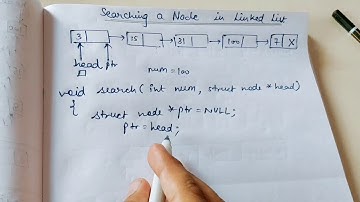 Searching a Node in Linked List
3 15 31 100 7 X
head ptr
num = 100
void search( int num, struct node * head)
{ struct node *ptr = NULL;
ptr = head;